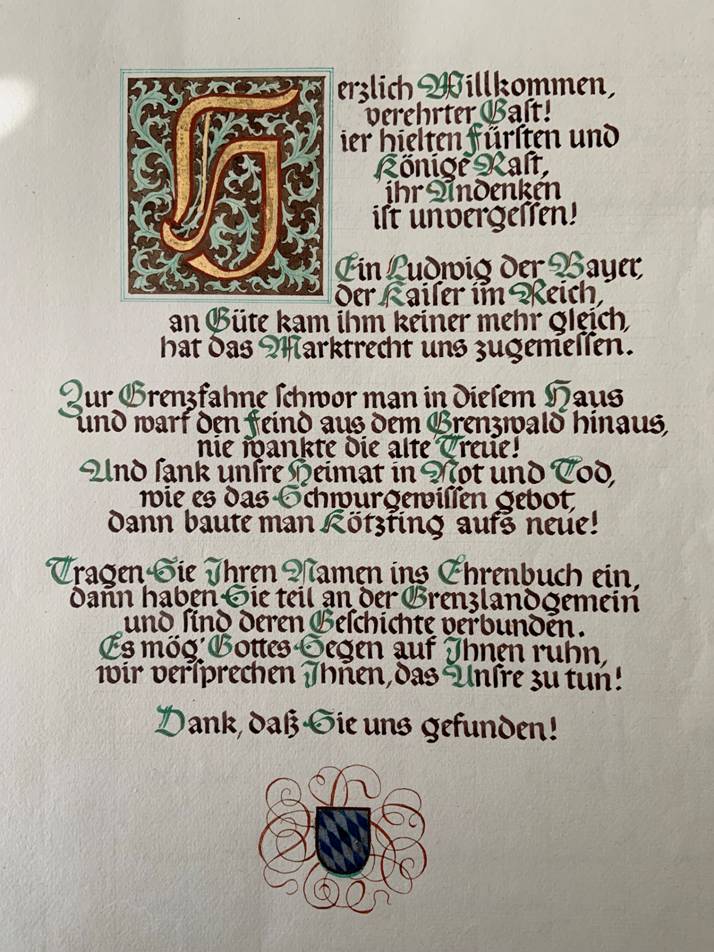 Herzlich Willkommen,
verehrter Gast!
Hier hielten Fürsten und
Könige Rast,
ihr Andenken
ist unvergessen!
Ein Ludwig der Bayer,
der Kaiser im Reich,
an Güte kam ihm keiner mehr gleich,
hat das Marktrecht uns zugemessen.
Zur Grenzfahne schwor man in diesem Haus
und warf den Feind aus dem Grenzwald hinaus,
nie wankte die alte Treue!
And sank unsre Heimat in Not und Tod,
wie es das Schwurgewissen gebot,
dann baute man Kötzting aufs neue!
Tragen Sie Ihren Namen ins Ehrenbuch ein,
dann haben Sie teil an der Grenzlandgemein
und sind deren Geschichte verbunden.
Es mög' Gottes Segen auf Ihnen ruhn,
wir versprechen Ihnen, das Unsre zu tun!
Dank, daß Sie uns gefunden!